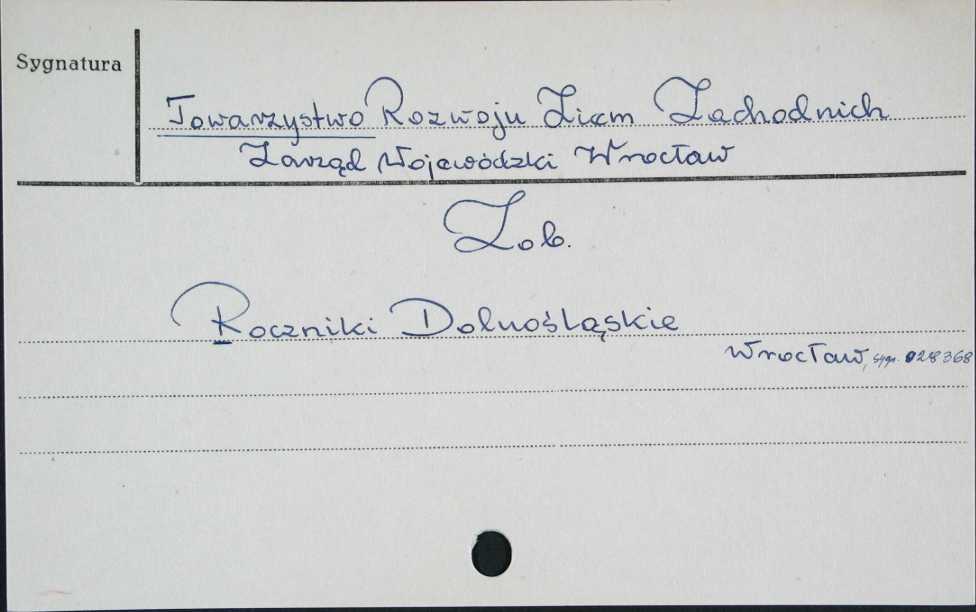 Sygnatura
Towarzystwo Rozwoju Ziem Zachodnich
Zarząd Wojewódzki Wrocław
Zob.
Roczniki Dolnośląskie
Wrocław, sygn. 028368